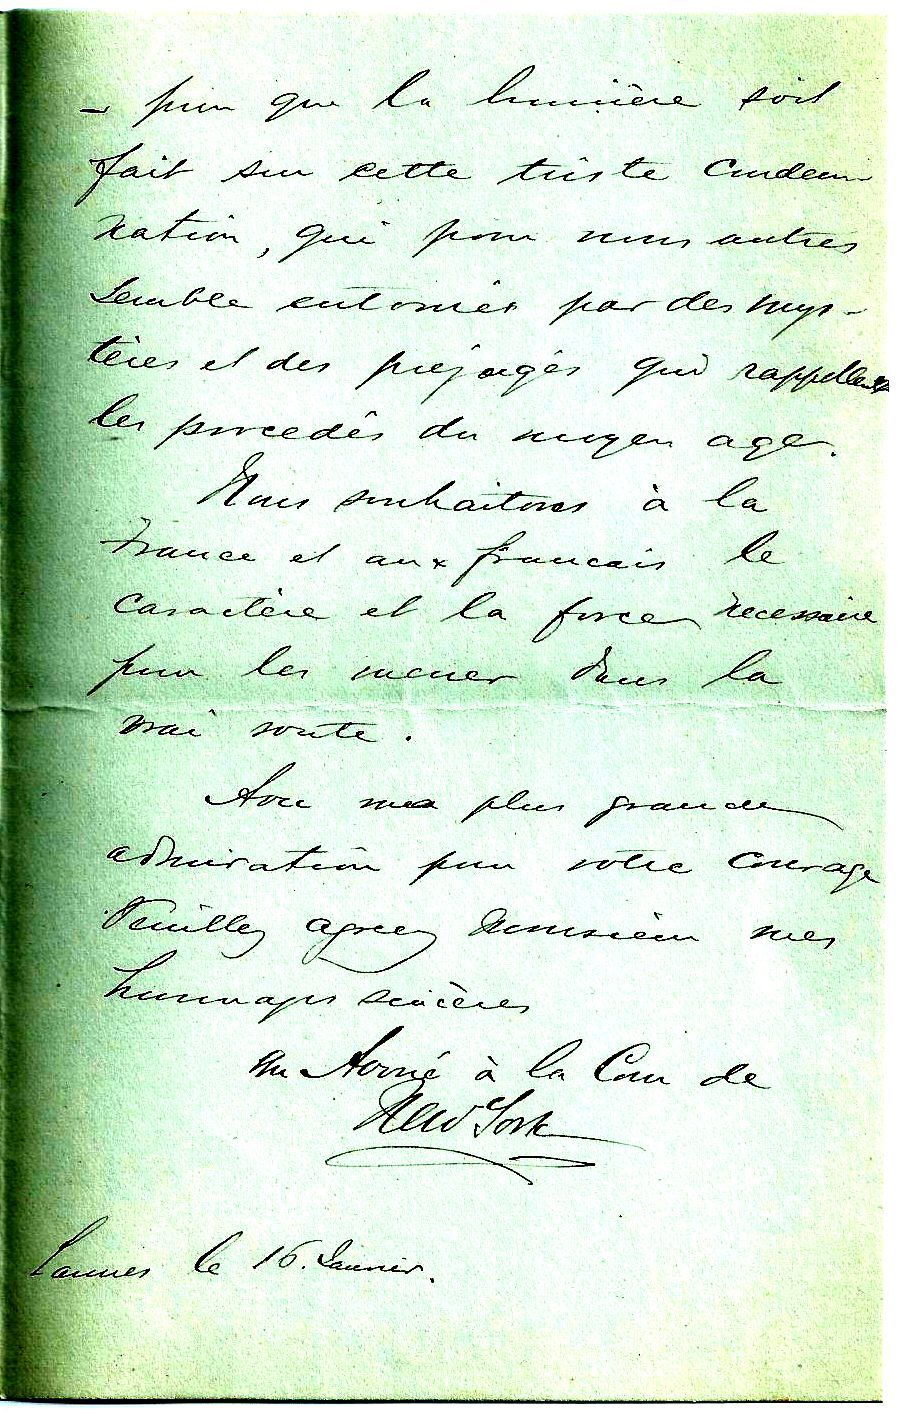 – pour que la lumière soit
fait sur cette triste condem-
nation, qui pour nous autres
semble entourés par des mys-
tères et des préjugés qui rappellent
les procedés du moyen age.
Nous souhaitons à la
France et aux français le
caractère et la force necessaire
pour les mener dans la
vrai route.
Avec ma plus grande
admiration pour votre courage
Veuillez agreez Monsieur mes
hommages sincères
un Avoué à la Cour de
New York
Cannes le 16. Janvier.